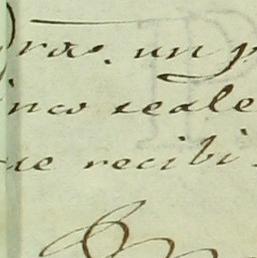 ra. un p
inco reale
ue recibi